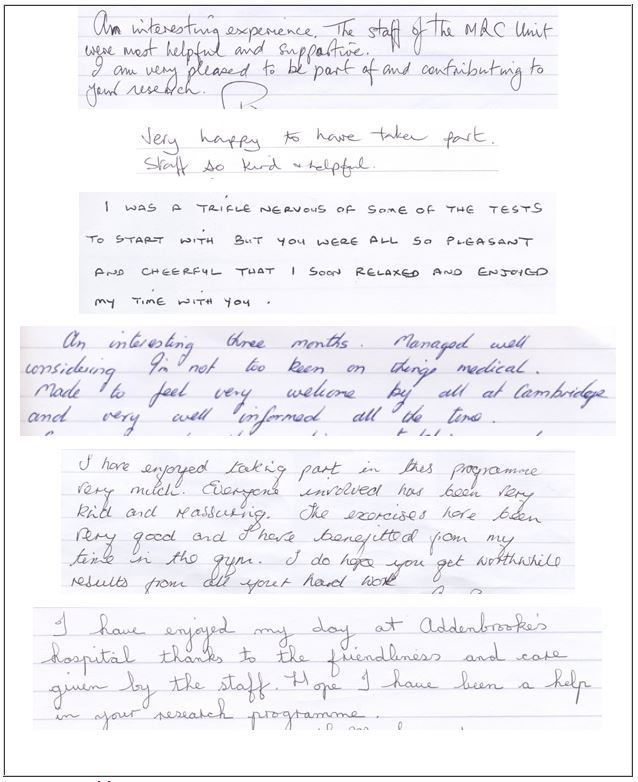 An interesting experience. The staff of the MRC Unit
were most helpful and supportive.
I am very pleased to be part of and contributing to
your research.
Very happy to have taken part.
Staff so kind & helpful.
I WAS A TRIFLE NERVOUS OF SOME OF THE TESTS
TO START WITH BUT YOU WERE ALL SO PLEASANT
AND CHEERFUL THAT I SOON RELAXED AND ENJOYED
MY TIME WITH YOU.
An interesting three months. Managed well
considering I'm not too keen on things medical.
Made to feel very welcome by all at Cambridge
and very well informed all the time.
I have enjoyed taking part in this programme
very much. Everyone involved has been very
kind and reassuring. The exercises have been
very good and I have benefitted from my
time in the gym. I do hope you get worthwhile
results from all your hard work
I have enjoyed my day at Addenbrooke's
hospital thanks to the friendliness and care
given by the staff. Hope I have been a help
in your research programme.